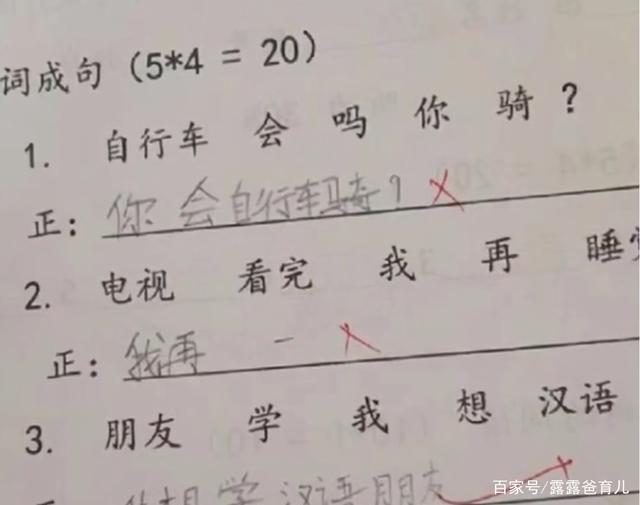 词成句（5*4 = 20）
1. 自行车 会 吗 你 骑？
正：你 会自行车骑？
2. 电视 看完 我 再 睡
正：我再 一
3. 朋友 学 我 想 汉语
想 学 汉语朋友
百家号/露露爸育儿